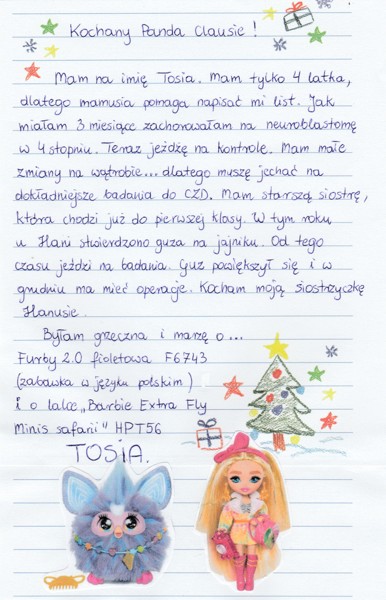 Kochany Panda Clausie!
Mam na imię Tosia. Mam tylko 4 latka,
dlatego mamusia pomaga napisać mi list. Jak
miałam 3 miesiące zachorowałam na neuroblastomę
w 4 stopniu. Teraz jeżdżę na kontrole. Mam małe
zmiany na wątrobie... dlatego muszę jechać na
dokładniejsze badania do CZD. Mam starszą siostrę,
która chodzi już do pierwszej klasy. W tym roku
u Hani stwierdzono guza na jajniku. Od tego
czasu jeździ na badania. Guz powiększył się i w
grudniu ma mieć operację. Kocham moją siostrzyczkę
Hanusię.
Byłam grzeczna i marzę o...
Furby 2.0 fioletowa F6743
(zabawka w języku polskim)
i o lalce „Barbie Extra Fly
Minis safari" HPT56
TOSIA.